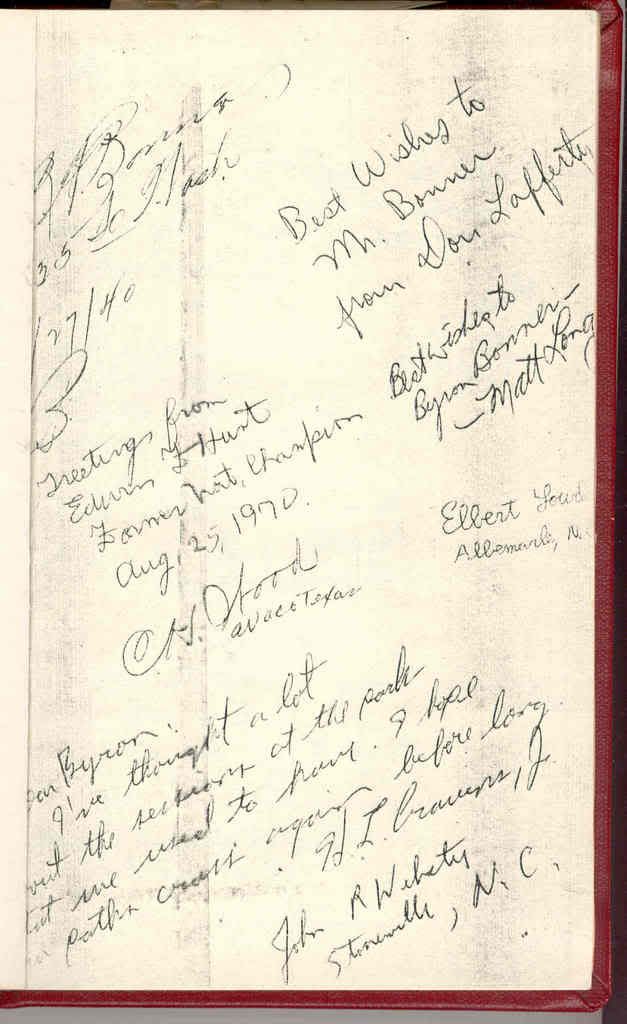 Bonner
35 So Nash
/27/40
B
Best Wishes to
Mr. Bonner
from Don Lafferty
Best wishes to
Byron Bonner –
– Matt Long
Greetings from
Edwin F Hunt
Former Nat. Champion
Aug, 25, 1970.
Elbert
Albemarle, N.
O.H. Wood
Texas
ear Byron:
I've thought a lot
out the sessions at the park
at we used to have. I hope
r paths cross again before long.
H L Cravens, Jr
John R Webster
Stoneville, N. C.